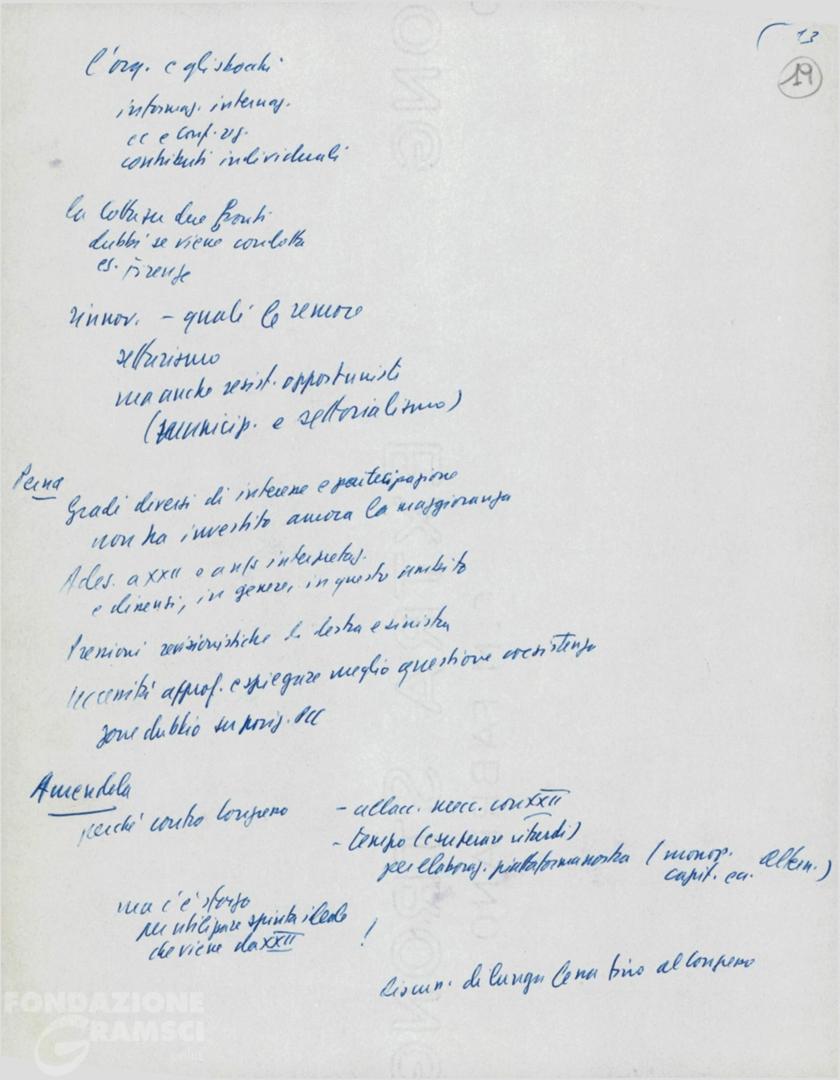 13
19
l'org. e gli sbocchi
informaz. internaz.
cc e conf. rg.
contributi individuali
la lotta su due fronti
dubbi se viene condotta
es. Firenze
rinnov. - quali le remore
settarismo
ma anche resist. opportunisti
(municip. e settorialismo)
Perna
Gradi diversi di interesse e partecipazione
non ha investito ancora la maggioranza
Ades. a XXII e a ns interpretaz.
e dissensi, in genere, in questo ambito
Pressioni revisionistiche di destra e sinistra
Necessità approf. e spiegare meglio questione coesistenza
zone dubbio su posiz. PCC
Amendola
perché contro Congresso - allacc. mecc. con XXII
- tempo (e superare ritardi)
per elaboraz. piattaforma nostra (monop. altern.)
capit.
ma c'è sforzo
per utilizzare spinta ideale
che viene da XXII !
Discuss. di lunga lena fino al Congresso
FONDAZIONE
GRAMSCI